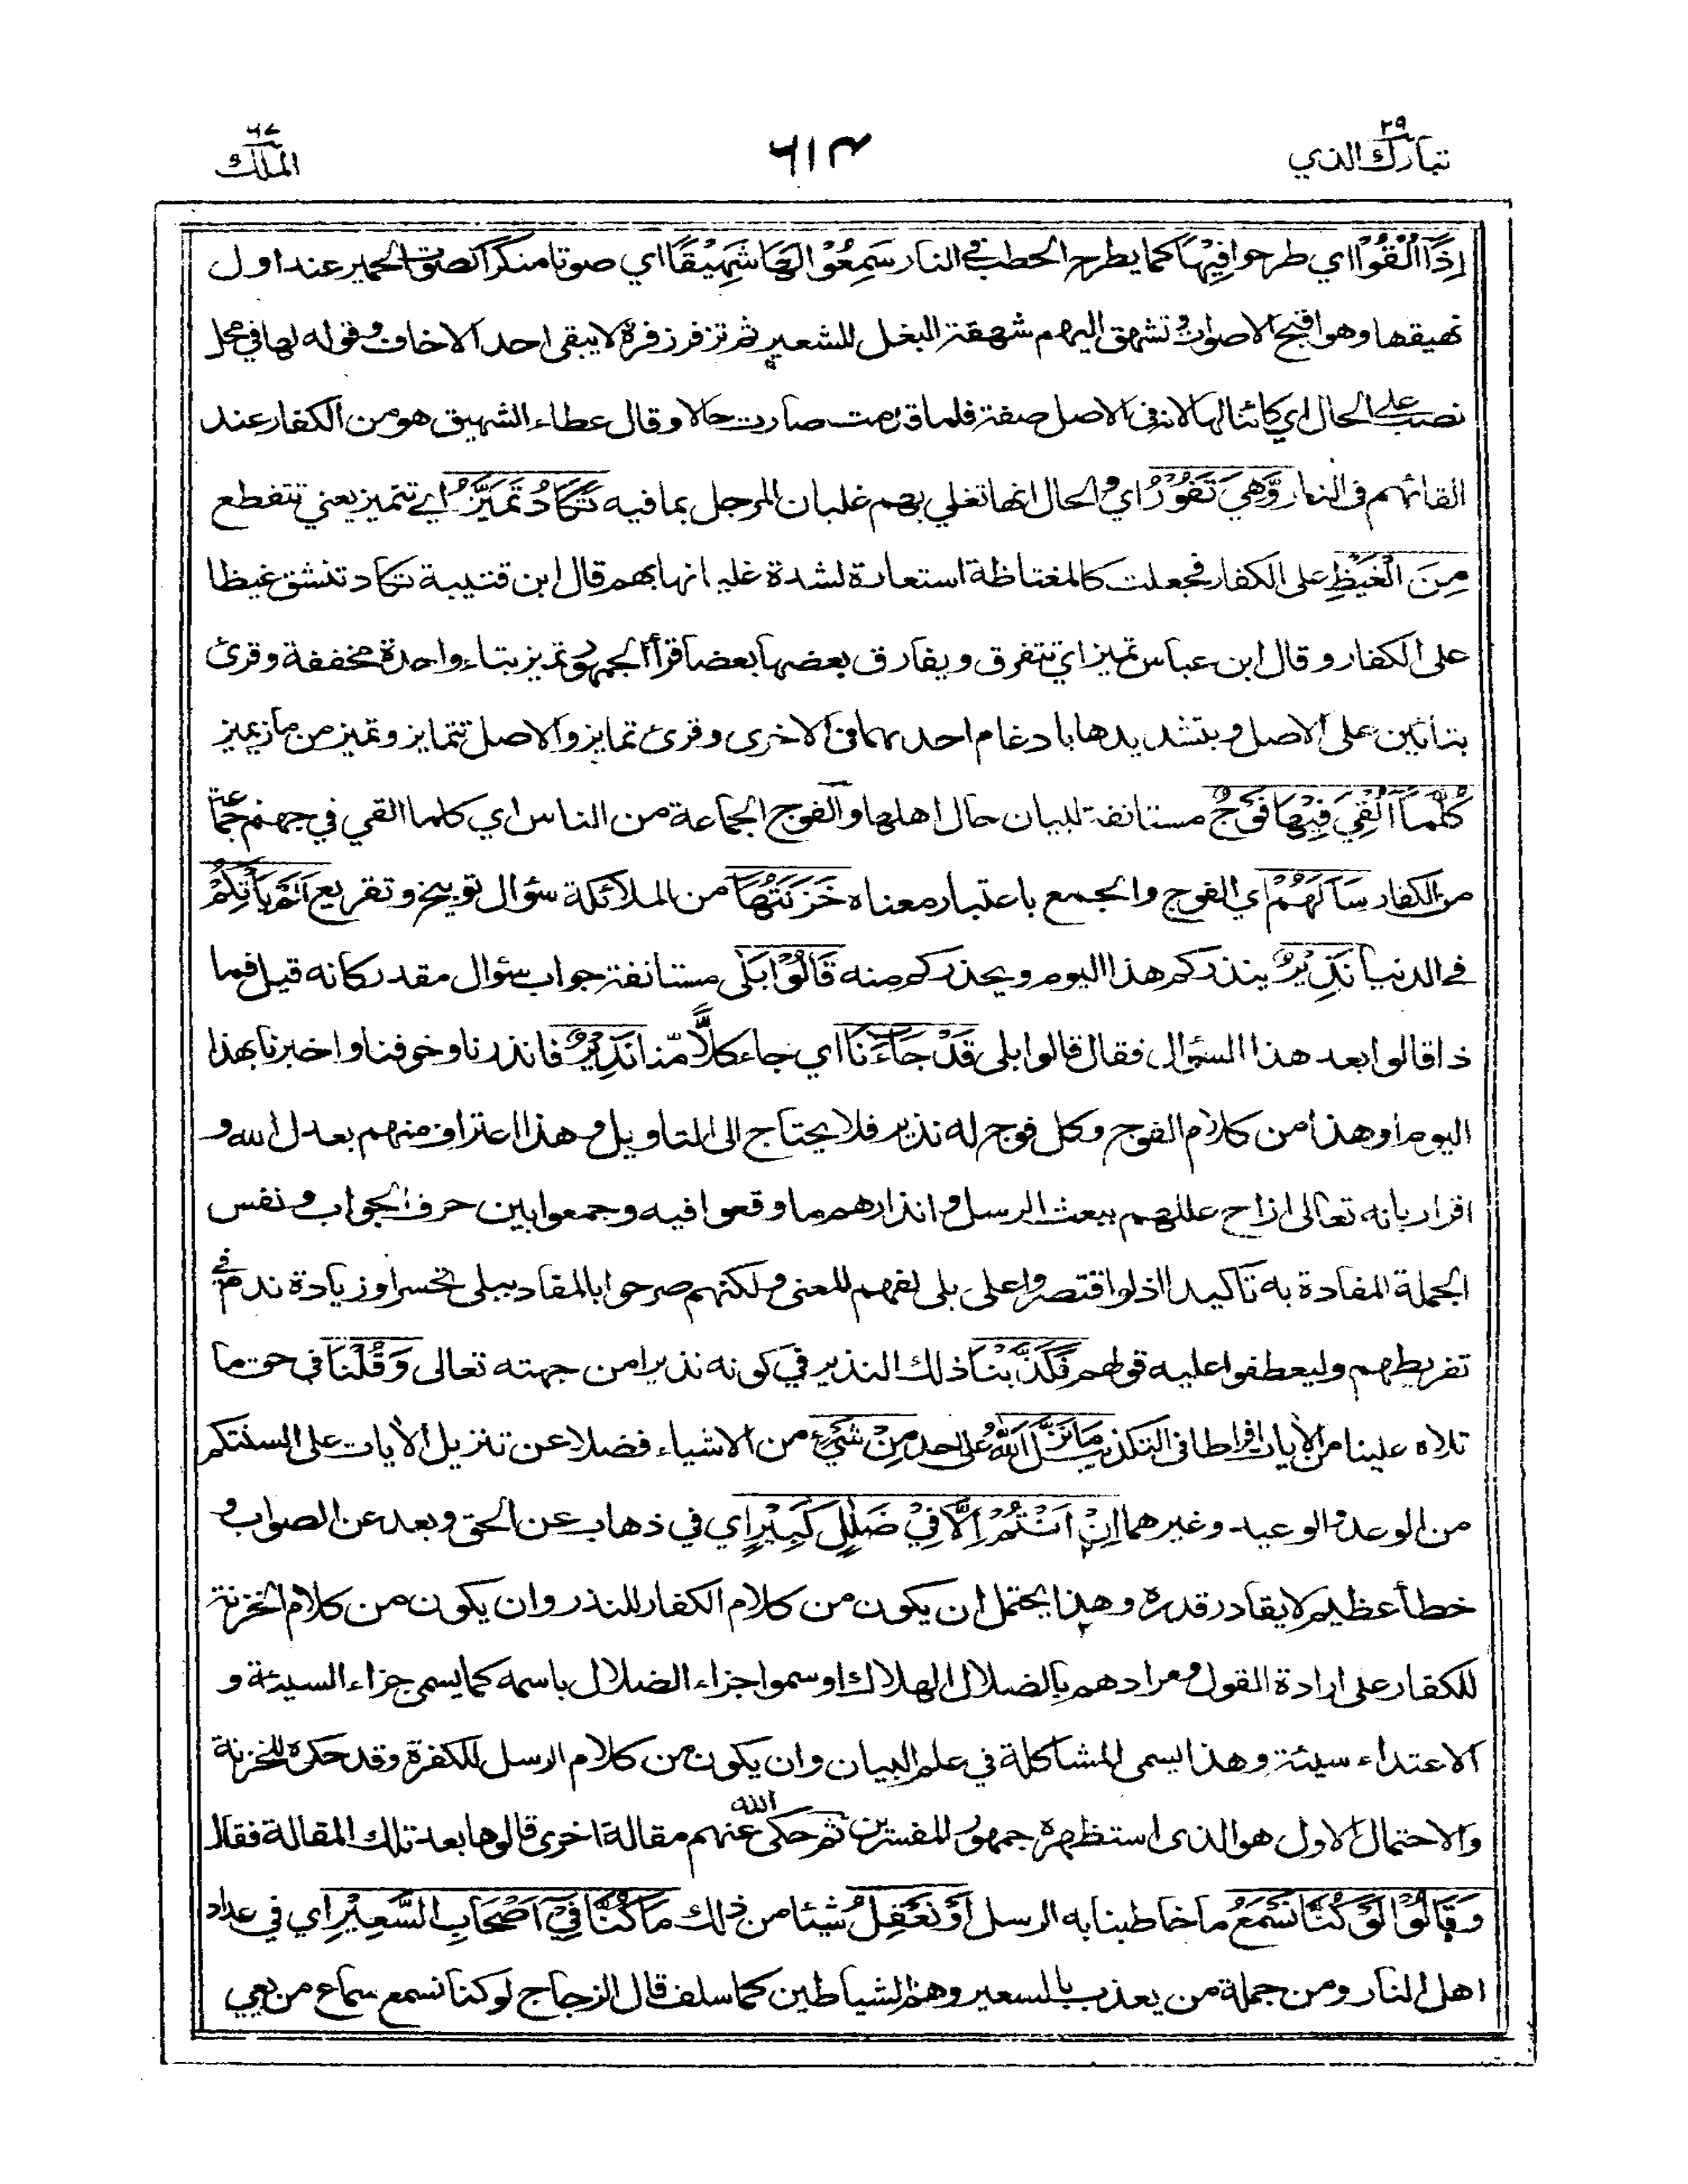 ٢٩
تبارك الذي
٦١٣
٦٧
الملك
إِذَآ أُلْقُوْا اي طرحوا فِيْهَا كما يطرح الحطب في النار سَمِعُوْا لَهَا شَهِيْقًا اي صوتا منكرا كصوت الحمير عند اول
نهيقها وهو اقبح الاصوات وتشهق اليهم شهقة البغل للشعير ثم تزفر زفرة لا يبقى احد الا خاف وقوله لها في محل
نصب على الحال اي كائنا لها لانه في الاصل صفة فلما قدمت صارت حالا وقال عطاء الشهيق هو من الكفار عند
القائهم في النار وَّهِيَ تَفُوْرُ اي والحال انها تغلي بهم غليان المرجل بما فيه تَكَادُ تَمَيَّزُ اي تتميز يعني تتقطع
مِنَ الْغَيْظِ على الكفار فجعلت كالمغتاظة استعارة لشدة غليانها بهم قال ابن قتيبة تكاد تنشق غيظا
على الكفار وقال ابن عباس تميز اي تتفرق ويفارق بعضها بعضا قرأ الجمهور تميز بتاء واحدة مخففة وقرئ
بتائين على الاصل وبتشديدها بادغام احدىهما في الاخرى وقرئ تمايز والاصل تتمايز وتميز من ماز يميز
كُلَّمَآ أُلْقِيَ فِيْهَا فَوْجٌ مستانفة لبيان حال اهلها والفوج الجماعة من الناس اي كلما القي في جهنم جماعة
من الكفار سَاَلَهُمْ اي الفوج والجمع باعتبار معناه خَزَنَتُهَآ من الملائكة سؤال توبيخ وتقريع اَلَمْ يَأْتِكُمْ
في الدنيا نَذِيْرٌ ينذركم هذا اليوم ويحذركم منه قَالُوْا بَلٰى مستانفة جواب سؤال مقدر كانه قيل فما
ذا قالوا بعد هذا السؤال فقال قالوا بلى قَدْ جَآءَنَا اي جاء كلّاً منا نَذِيْرٌ فانذرنا وخوفنا واخبرنا بهذا
اليوم او هذا من كلام الفوج وكل فوج له نذير فلا يحتاج الى التاويل وهذا اعتراف منهم بعدل الله و
اقرار بانه تعالى ازاح عللهم ببعث الرسل وانذارهم ما وقعوا فيه وجمعوا بين حرف الجواب ونفس
الجملة المفادة به تاكيدا اذ لو اقتصروا على بلى لفهم المعنى ولكنهم صرحوا بالمفاد ببلى تحسرا وزيادة ندم في
تفريطهم وليعطفوا عليه قولهم فَكَذَّبْنَا ذلك النذير في كونه نذيرا من جهته تعالى وَقُلْنَا في حق ما
تلاه علينا من الآيات افراطا في التكذيب مَا نَزَّلَ اللّٰهُ على احد مِنْ شَيْءٍ من الاشياء فضلا عن تنزيل الآيات على السنتكم
من الوعد والوعيد وغيرهما اِنْ اَنْتُمْ اِلَّا فِيْ ضَلٰلٍ كَبِيْرٍ اي في ذهاب عن الحق وبعد عن الصواب و
خطأ عظيم لا يقادر قدره وهذا يحتمل ان يكون من كلام الكفار للنذر وان يكون من كلام الخزنة
للكفار على ارادة القول ومرادهم بالضلال الهلاك او سموا جزاء الضلال باسمه كما يسمى جزاء السيئة و
الاعتداء سيئة وهذا يسمى المشاكلة في علم البيان وان يكون من كلام الرسل للكفرة وقد حكوه للخزنة
والاحتمال الاول هو الذى استظهره جمهور المفسرين ثم حكى الله عنهم مقالة اخرى قالوها بعد تلك المقالة فقال
وَقَالُوْا لَوْ كُنَّا نَسْمَعُ ما خاطبنا به الرسل اَوْ نَعْقِلُ شيئا من ذلك مَا كُنَّا فِيْٓ اَصْحَابِ السَّعِيْرِ اي في عداد
اهل النار ومن جملة من يعذب بالسعير وهم الشياطين كما سلف قال الزجاج لو كنا نسمع سماع من يعي